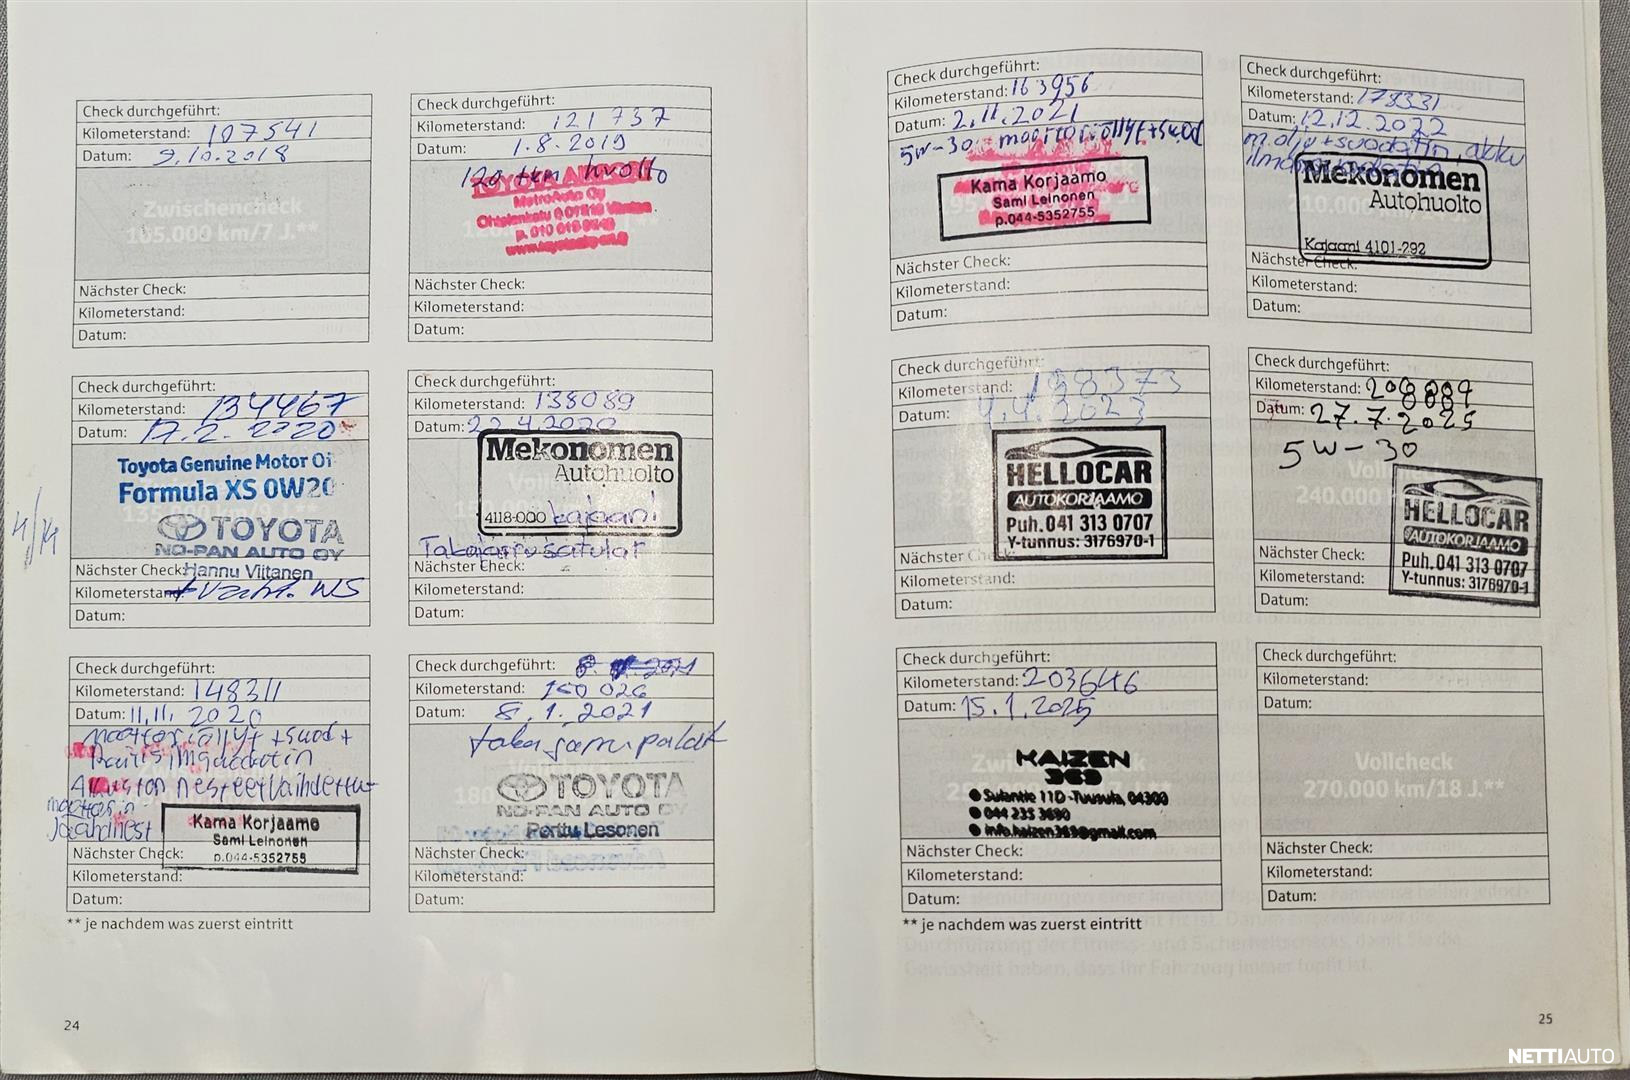 Check durchgeführt:
Kilometerstand: 107541
Datum: 9.10.2018
Zwischencheck
105.000 km/7 J.**
Nächster Check:
Kilometerstand:
Datum:
Check durchgeführt:
Kilometerstand: 121737
Datum: 1.8.2019
120 tkm huolto
MetroAuto Oy
Nächster Check:
Kilometerstand:
Datum:
Check durchgeführt:
Kilometerstand: 134467
Datum: 17.2.2020
Toyota Genuine Motor Oi
Formula XS 0W20
135.000 km/9 J.**
TOYOTA
NO-PAN AUTO OY
Nächster Check: Hannu Viitanen
Kilometerstand
Datum:
4/14
Check durchgeführt:
Kilometerstand: 138089
Datum: 22.4.2020
Mekonomen
Autohuolto
4118-000 Kajaani
Takajarru satulat
Nächster Check:
Kilometerstand:
Datum:
Check durchgeführt:
Kilometerstand: 148311
Datum: 11.11.2020
moottoriöljyt + suod +
Raitisilmasuodatin
nesteet vaihdettu
moottorin
Kama Korjaamo
Sami Leinonen
p.044-5352755
Nächster Check:
Kilometerstand:
Datum:
** je nachdem was zuerst eintritt
24
Check durchgeführt:
Kilometerstand: 150026
Datum: 8.1.2021
taka jarrupalat
TOYOTA
NO-PAN AUTO OY
Perttu Lesonen
Nächster Check:
Kilometerstand:
Datum:
Check durchgeführt:
Kilometerstand: 163956
Datum: 2.11.2021
5W-30 moottoriöljyt+suod
Kama Korjaamo
Sami Leinonen
p.044-5352755
Nächster Check:
Kilometerstand:
Datum:
Check durchgeführt:
Kilometerstand: 178331
Datum: 12.12.2022
m.öljy + suodatin, akku
Mekonomen
Autohuolto
Kajaani 4101-292
Nächster Check:
Kilometerstand:
Datum:
Check durchgeführt:
Kilometerstand: 188373
Datum: 4.4.2023
HELLOCAR
AUTOKORJAAMO
Puh. 041 313 0707
Y-tunnus: 3176970-1
Nächster Check:
Kilometerstand:
Datum:
Check durchgeführt:
Kilometerstand:
Datum: 27.7.2025
5W-30
240.000
HELLOCAR
AUTOKORJAAMO
Puh. 041 313 0707
Y-tunnus: 3176970-1
Nächster Check:
Kilometerstand:
Datum:
Check durchgeführt:
Kilometerstand: 203646
Datum: 15.1.2025
KAIZEN
369
Sulantie 11D -Tuusula, 04300
044 235 3690
info.kaizen369@gmail.com
Nächster Check:
Kilometerstand:
Datum:
** je nachdem was zuerst eintritt
Check durchgeführt:
Kilometerstand:
Datum:
Vollcheck
270.000 km/18 J.**
Nächster Check:
Kilometerstand:
Datum:
25
NETTIAUTO